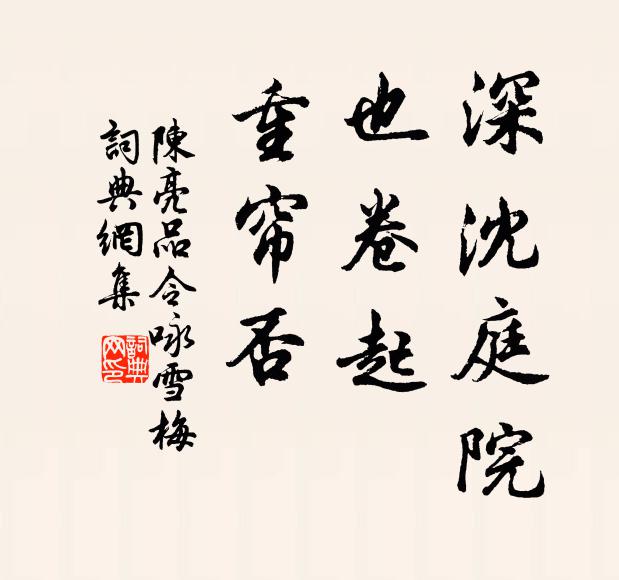 深沈庭院
也卷起
重帘否
陳亮品令咏雪梅
詞典網集
詞典网印